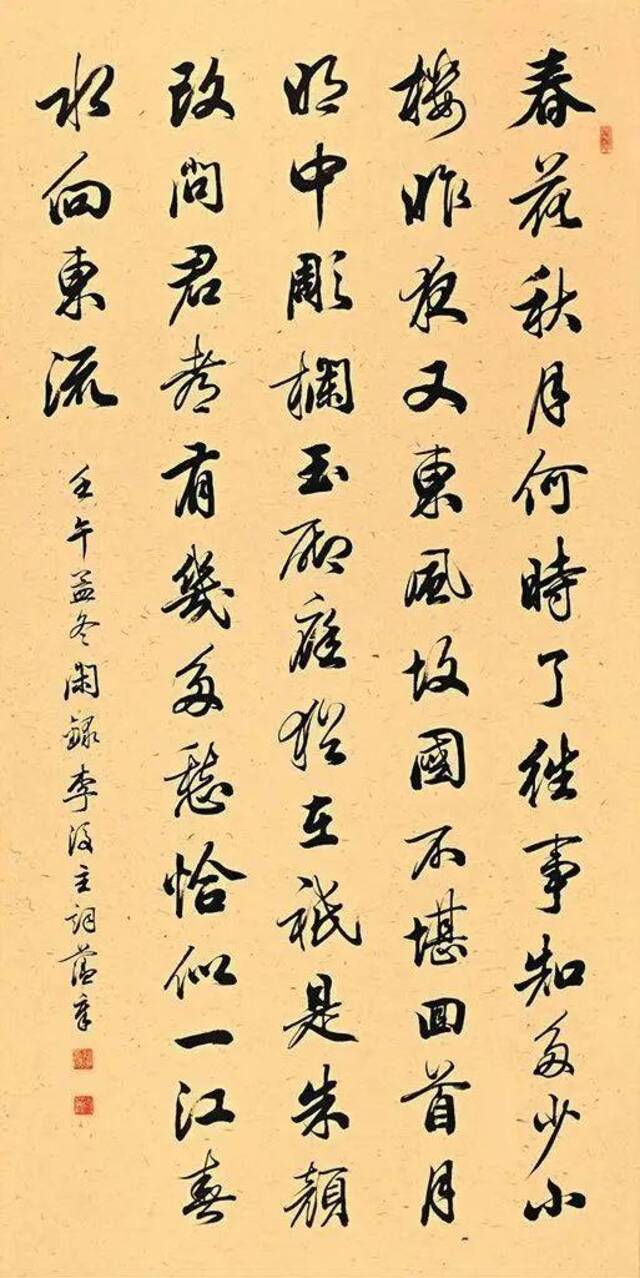 春花秋月何時了往事知多少小
樓昨夜又東風故國不堪回首月
明中彫欄玉砌庭猶在祇是朱顏
改問君都有幾多愁恰似一江春
水向東流
壬午孟冬閑錄李後主詞蘊章